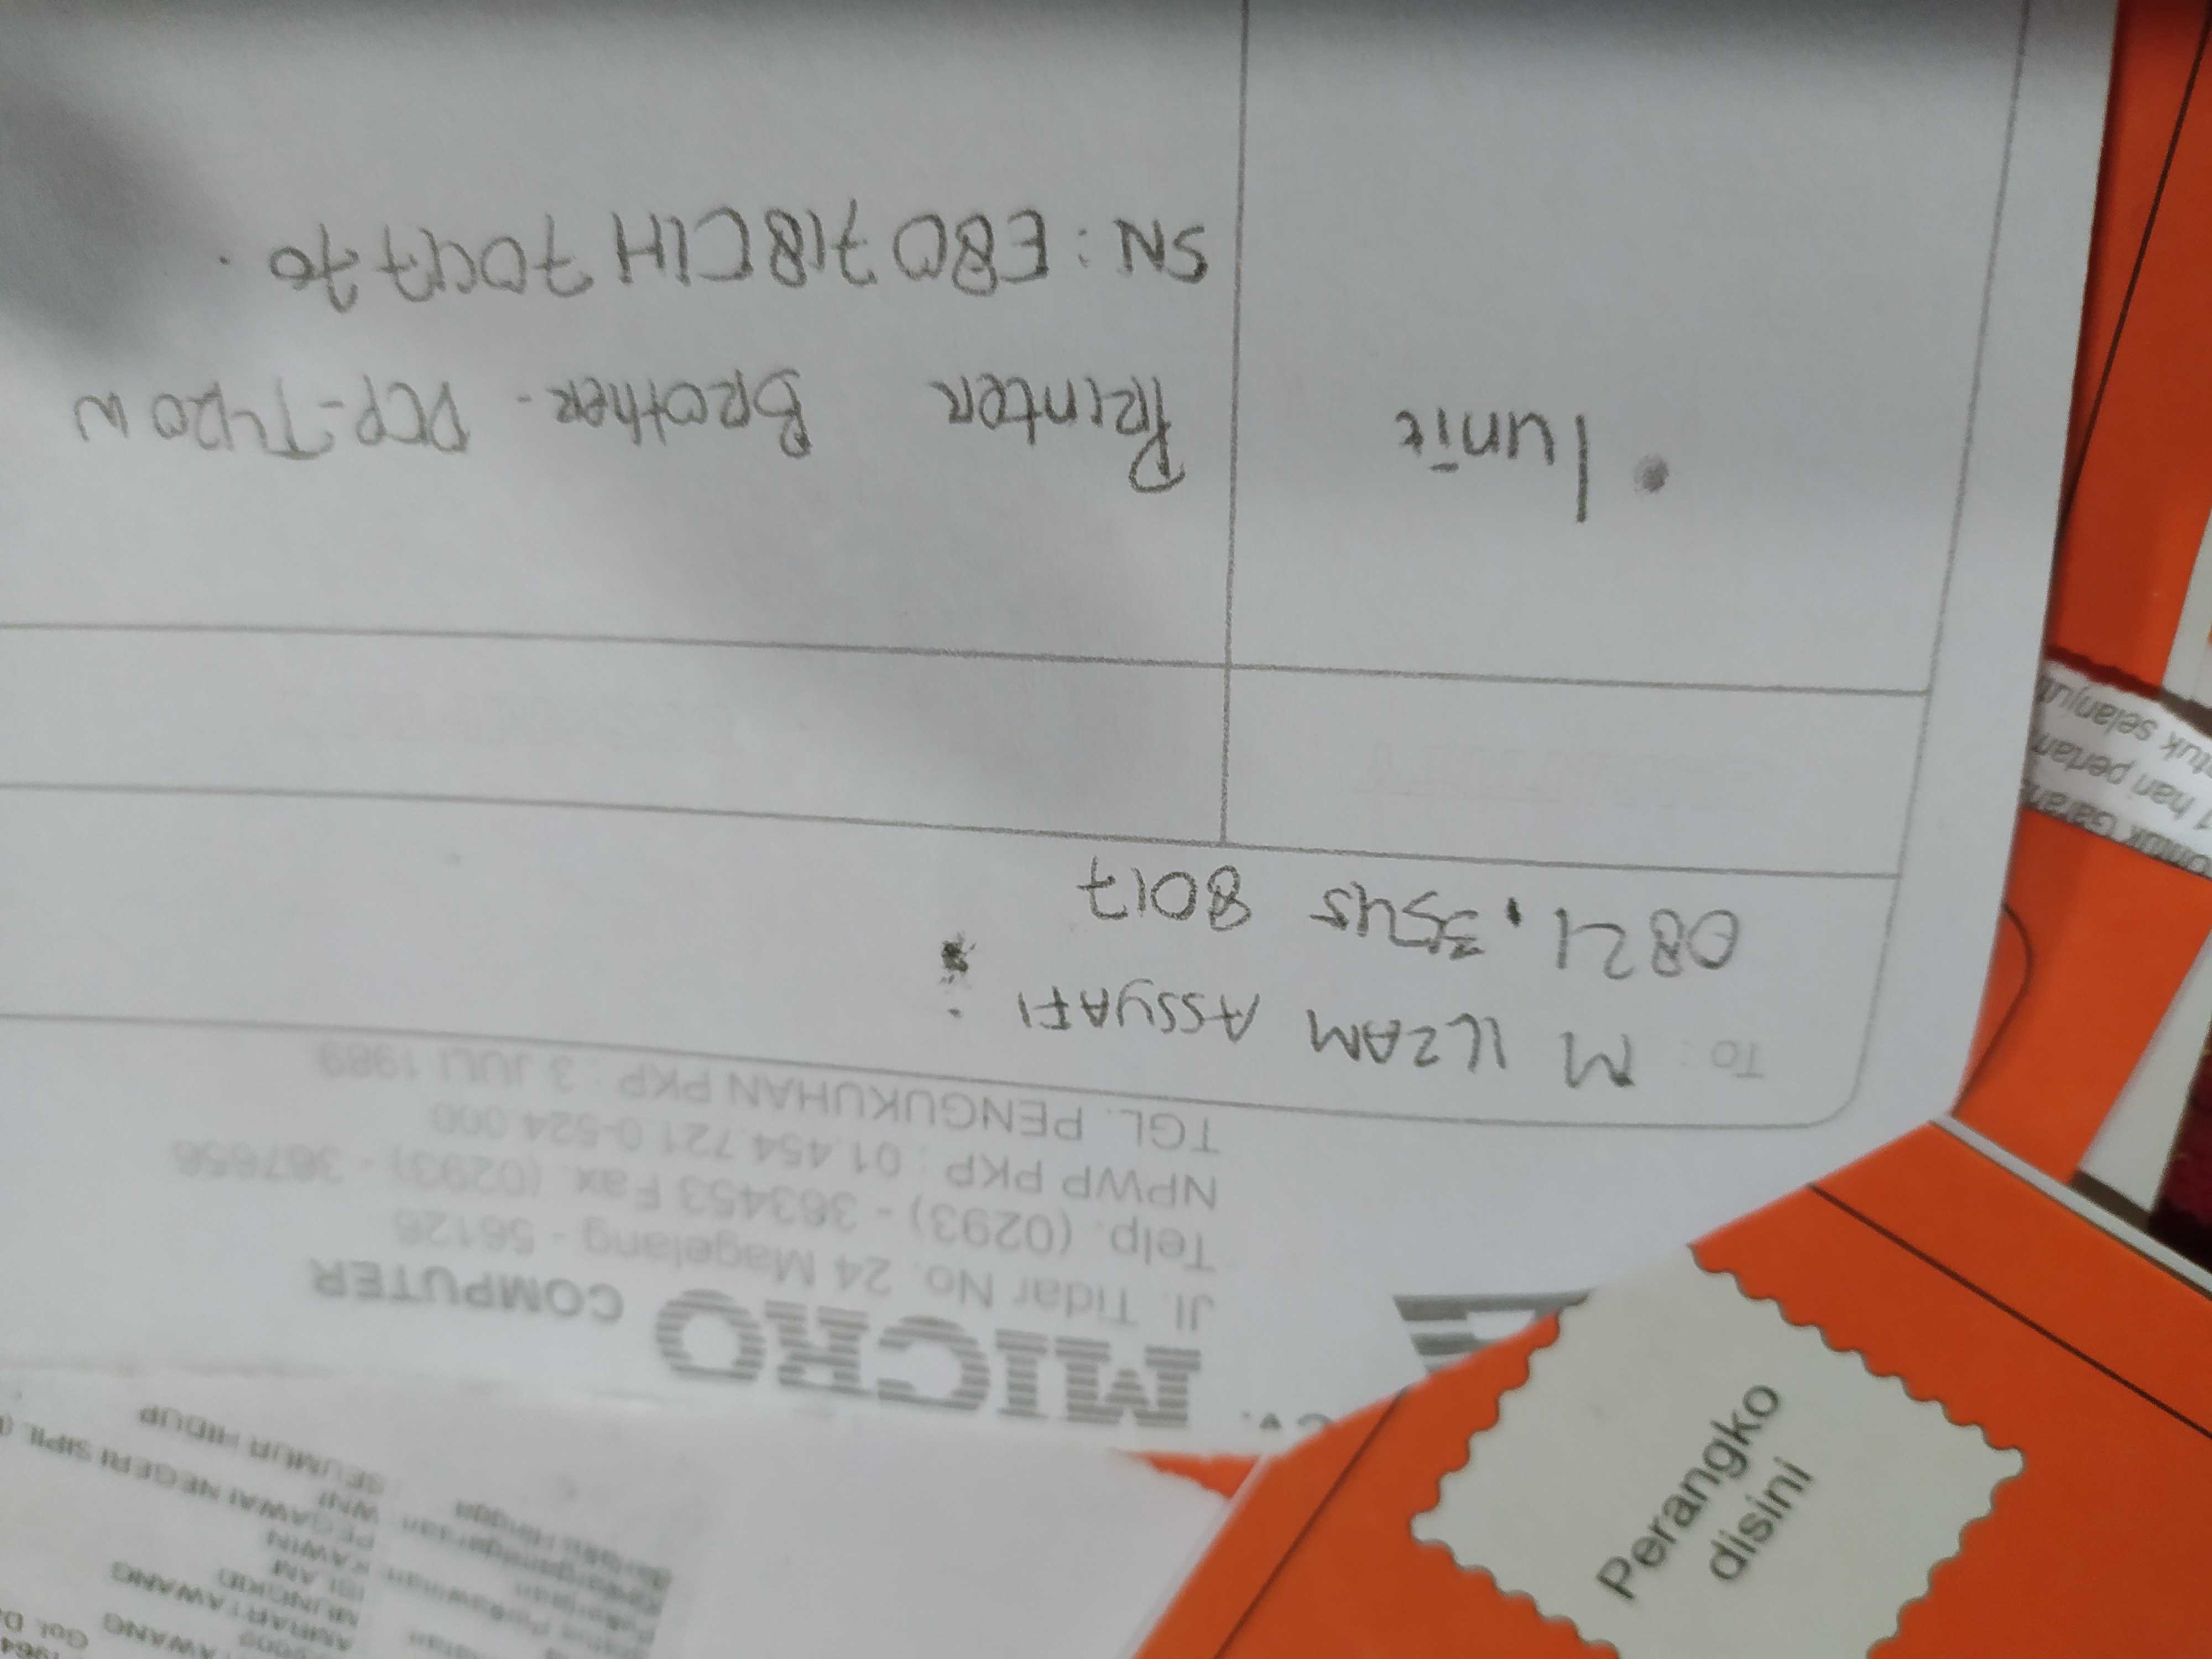 CV. MICRO COMPUTER
Jl. Tidar No. 24 Magelang - 56126
Telp. (0293) - 363453 Fax. (0293) - 367656
NPWP PKP : 01.454.721.0-524.000
TGL. PENGUKUHAN PKP : 3 JULI 1989
To : M ILZAM ASSYAFI
0821. 3545 8017
1 unit
Printer Brother - DCP-T420W
SN : E80718C1H704770
Perangko
disini
1 hari
selanjut
AMBARTAWANG
MUNGKID
ISLAM
KAWIN
PEGAWAI NEGERI SIPIL
WNI
Berlaku Hingga SEUMUR HIDUP